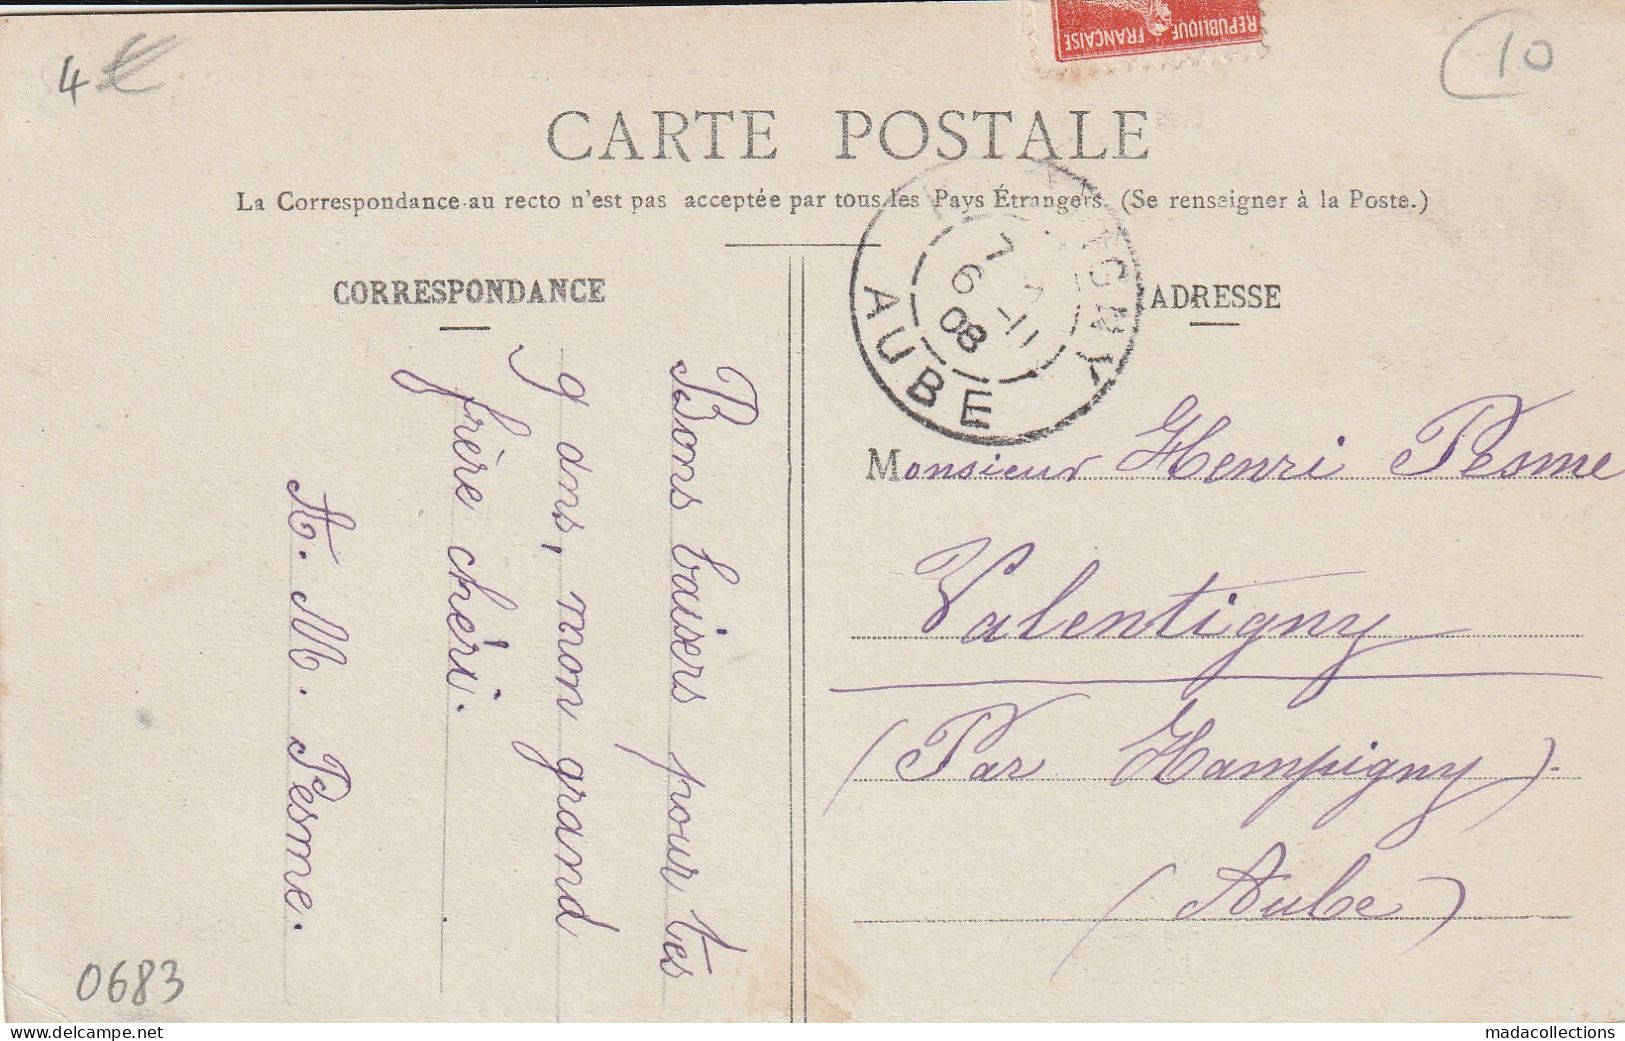 4 €
REPUBLIQUE FRANÇAISE
10
CARTE POSTALE
La Correspondance au recto n'est pas acceptée par tous les Pays Étrangers. (Se renseigner à la Poste.)
CORRESPONDANCE
Bons baisers pour tes
9 ans, mon grand
frère chéri.
A. M. Pesme.
0683
AUBE
7
6 -11
08
ADRESSE
Monsieur Henri Pesme
Valentigny
(Par Hampigny)
(Aube)
www.delcampe.net
madacollections